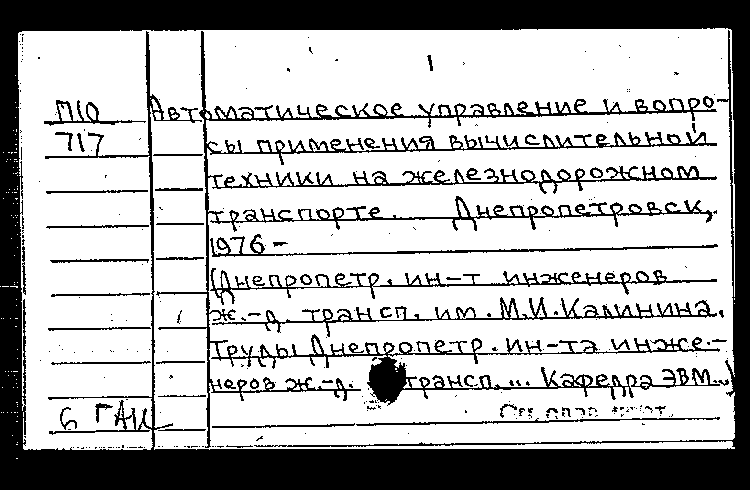 1
П10 Автоматическое управление и вопро-
717 сы применения вычислительной
техники на железнодорожном
транспорте. Днепропетровск,
1976 -
(Днепропетр. ин-т инженеров
ж.-д. трансп. им. М.И.Калинина.
Труды Днепропетр. ин-та инже-
неров ж.-д. трансп. ... Кафедра ЭВМ...)
6